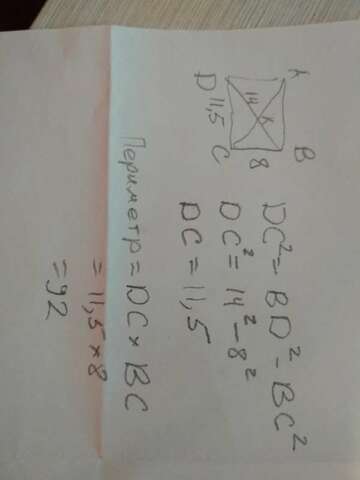 A
B
D
14
K
11,5
C
8
DC² = BD² - BC²
DC² = 14² - 8²
DC = 11,5
Периметр = DC × BC
= 11,5 × 8
= 92